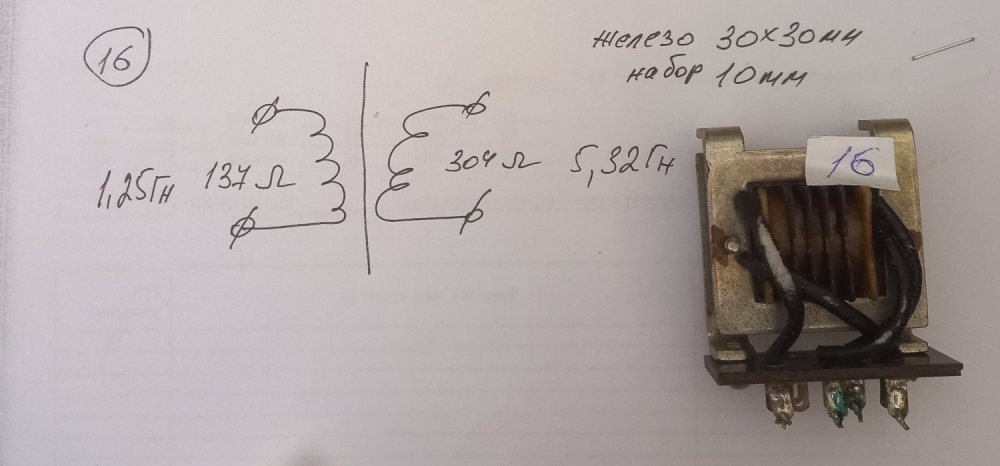 16
железо 30×30мм
набор 10мм
1,25Гн 137 Ω 304 Ω 5,32Гн
16